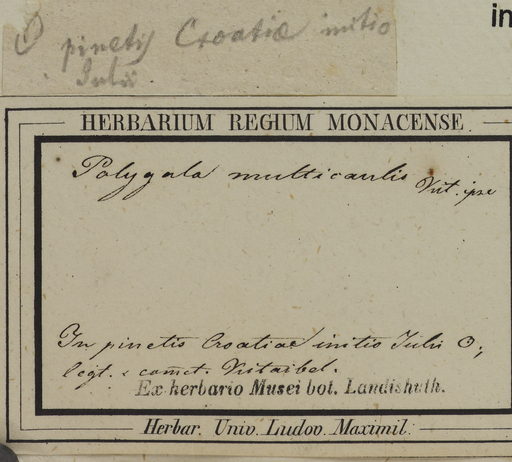 in
pinetis Croatiæ initio
Julii
HERBARIUM REGIUM MONACENSE
Polygala multicaulis Kit. ipse
In pinetis Croatiae initio Julii O;
legt. & com̅ct. Kitaibel.
Ex herbario Musei bot. Landishuth.
Herbar. Univ. Ludov. Maximil.